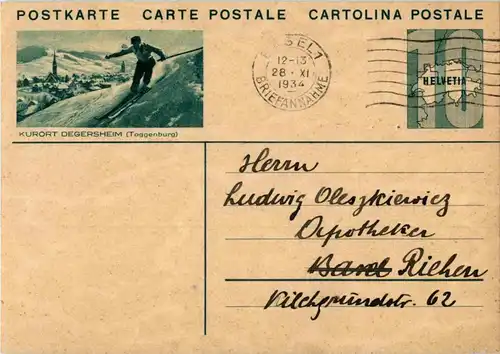 POSTKARTE CARTE POSTALE CARTOLINA POSTALE
BASEL 1
12-13
28·XI
1934
BRIEFANNAHME
10
HELVETIA
KURORT DEGERSHEIM (Toggenburg)
Herrn
Ludwig Oleszkiewicz
Apotheker
Basel Riehen
Kilchgrundstr. 62